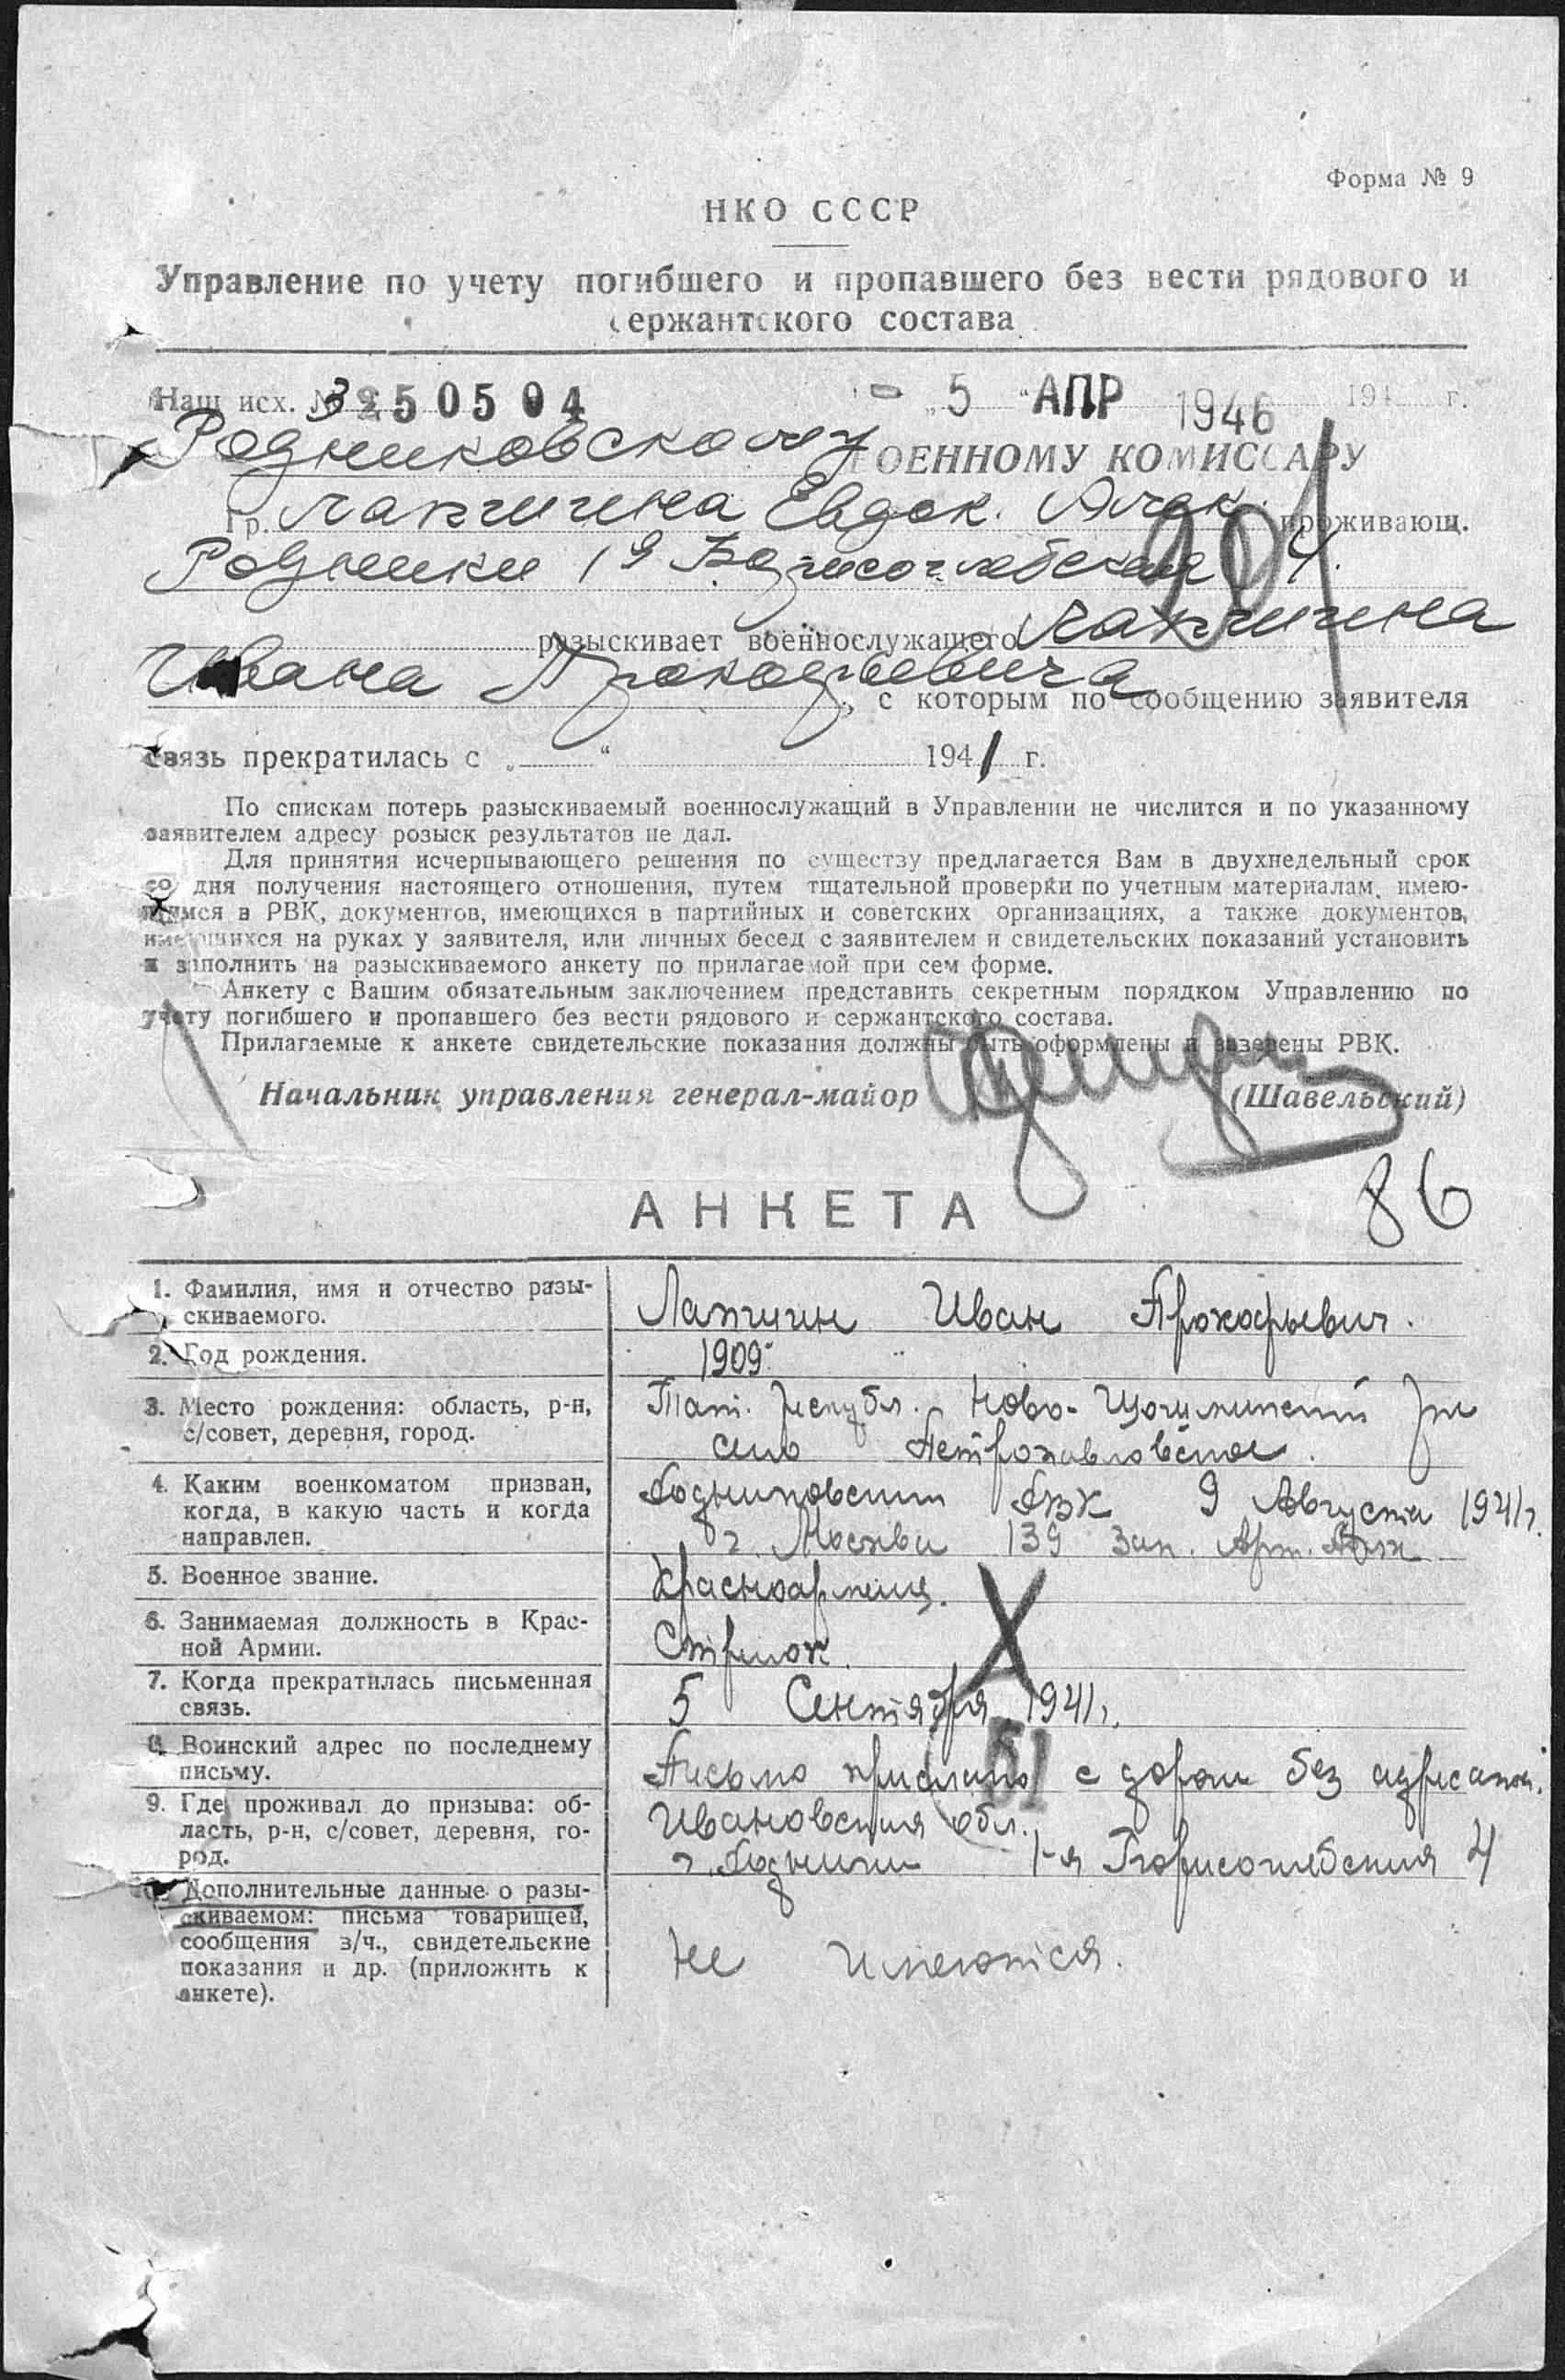 Форма № 9
НКО СССР
Управление по учету погибшего и пропавшего без вести рядового и
сержантского состава
Наш исх. № 3250504 - 5 АПР 1946 194 г.
Родниковскому ВОЕННОМУ КОМИССАРУ
Гр. Лапчигина Евдок. проживающ.
Родники 1я Борисоглебская 4.
разыскивает военнослужащего Лапчигина
Ивана Прокофьевича, с которым по сообщению заявителя
связь прекратилась с „ “ 1941 г.
По спискам потерь разыскиваемый военнослужащий в Управлении не числится и по указанному
заявителем адресу розыск результатов не дал.
Для принятия исчерпывающего решения по существу предлагается Вам в двухнедельный срок
со дня получения настоящего отношения, путем тщательной проверки по учетным материалам, имею-
щимся в РВК, документов, имеющихся в партийных и советских организациях, а также документов,
имеющихся на руках у заявителя, или личных бесед с заявителем и свидетельских показаний установить
и заполнить на разыскиваемого анкету по прилагаемой при сем форме.
Анкету с Вашим обязательным заключением представить секретным порядком Управлению по
учету погибшего и пропавшего без вести рядового и сержантского состава.
Прилагаемые к анкете свидетельские показания должны быть оформлены и заверены РВК.
Начальник управления генерал-майор (Шавельский)
86
АНКЕТА
1. Фамилия, имя и отчество разы-
скиваемого.
Лапчигин Иван Прокофьевич.
2. Год рождения.
1909
3. Место рождения: область, р-н,
с/совет, деревня, город.
Тат. Республ. Ново-
село Петропавловское.
4. Каким военкоматом призван,
когда, в какую часть и когда
направлен.
Родниковским РВК 9 Августа 1941 г.
г. Москва 139 Зап. Арт. Полк
5. Военное звание.
Красноармеец.
6. Занимаемая должность в Крас-
ной Армии.
Стрелок.
7. Когда прекратилась письменная
связь.
5 Сентября 1941 г.
8. Воинский адрес по последнему
письму.
Письмо прислано с дороги без адреса
9. Где проживал до призыва: об-
ласть, р-н, с/совет, деревня, го-
род.
Ивановская обл.
г. Родники 1-я Борисоглебская 4
10. Дополнительные данные о разы-
скиваемом: письма товарищей,
сообщения з/ч., свидетельские
показания и др. (приложить к
анкете).
Не имеются.